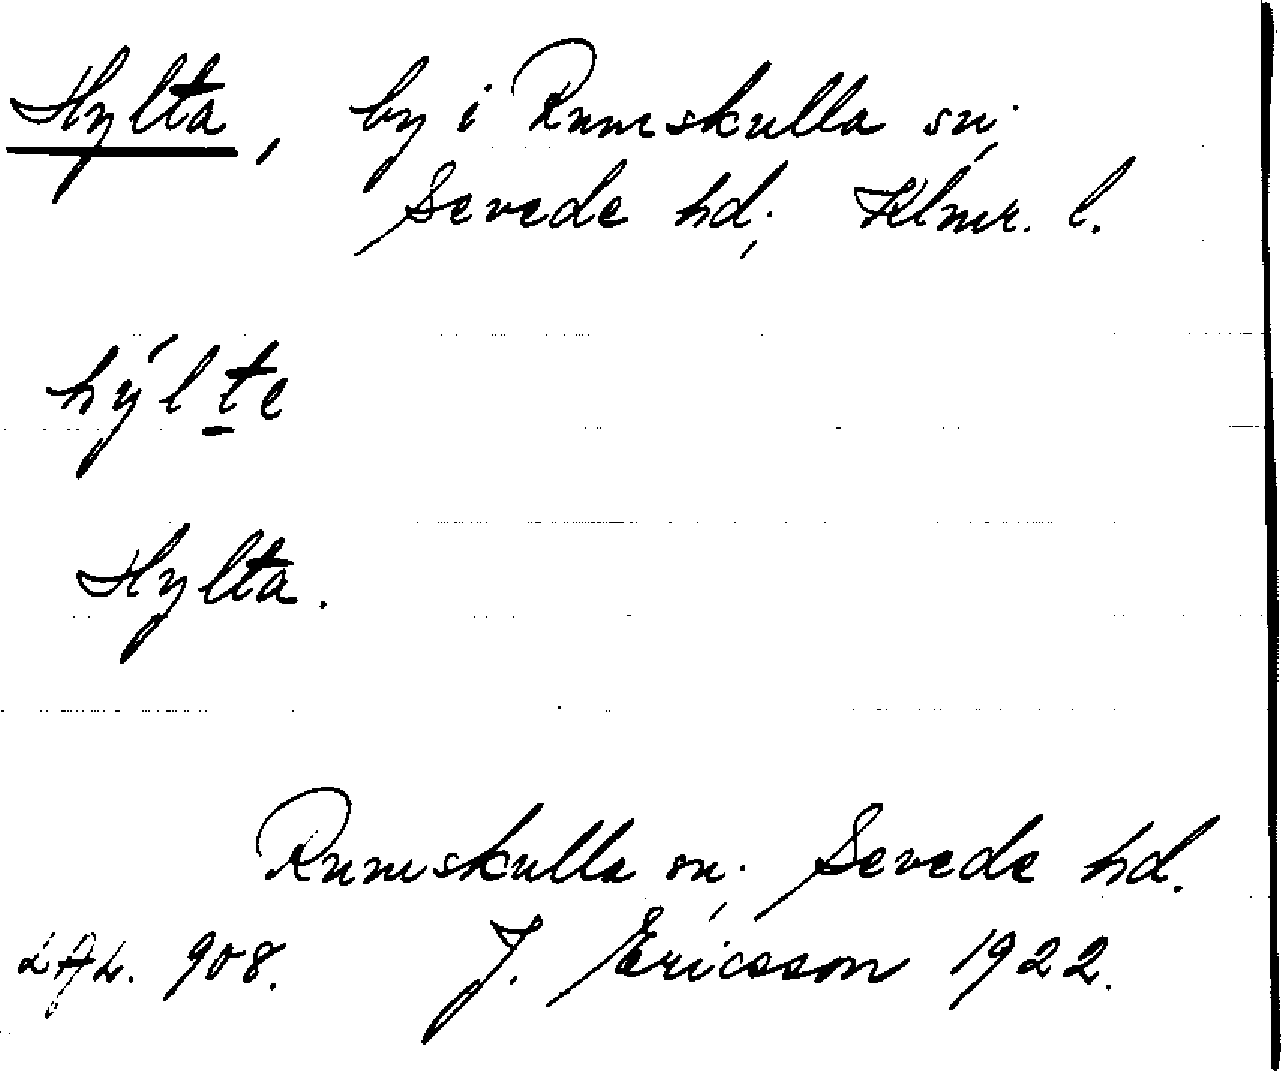 Hylta, by i Rumskulla sn.,
Sevede hd., Klmr. l.
hýlte
Hylta.
Rumskulla sn., Sevede hd.
908. J. Ericsson 1922.